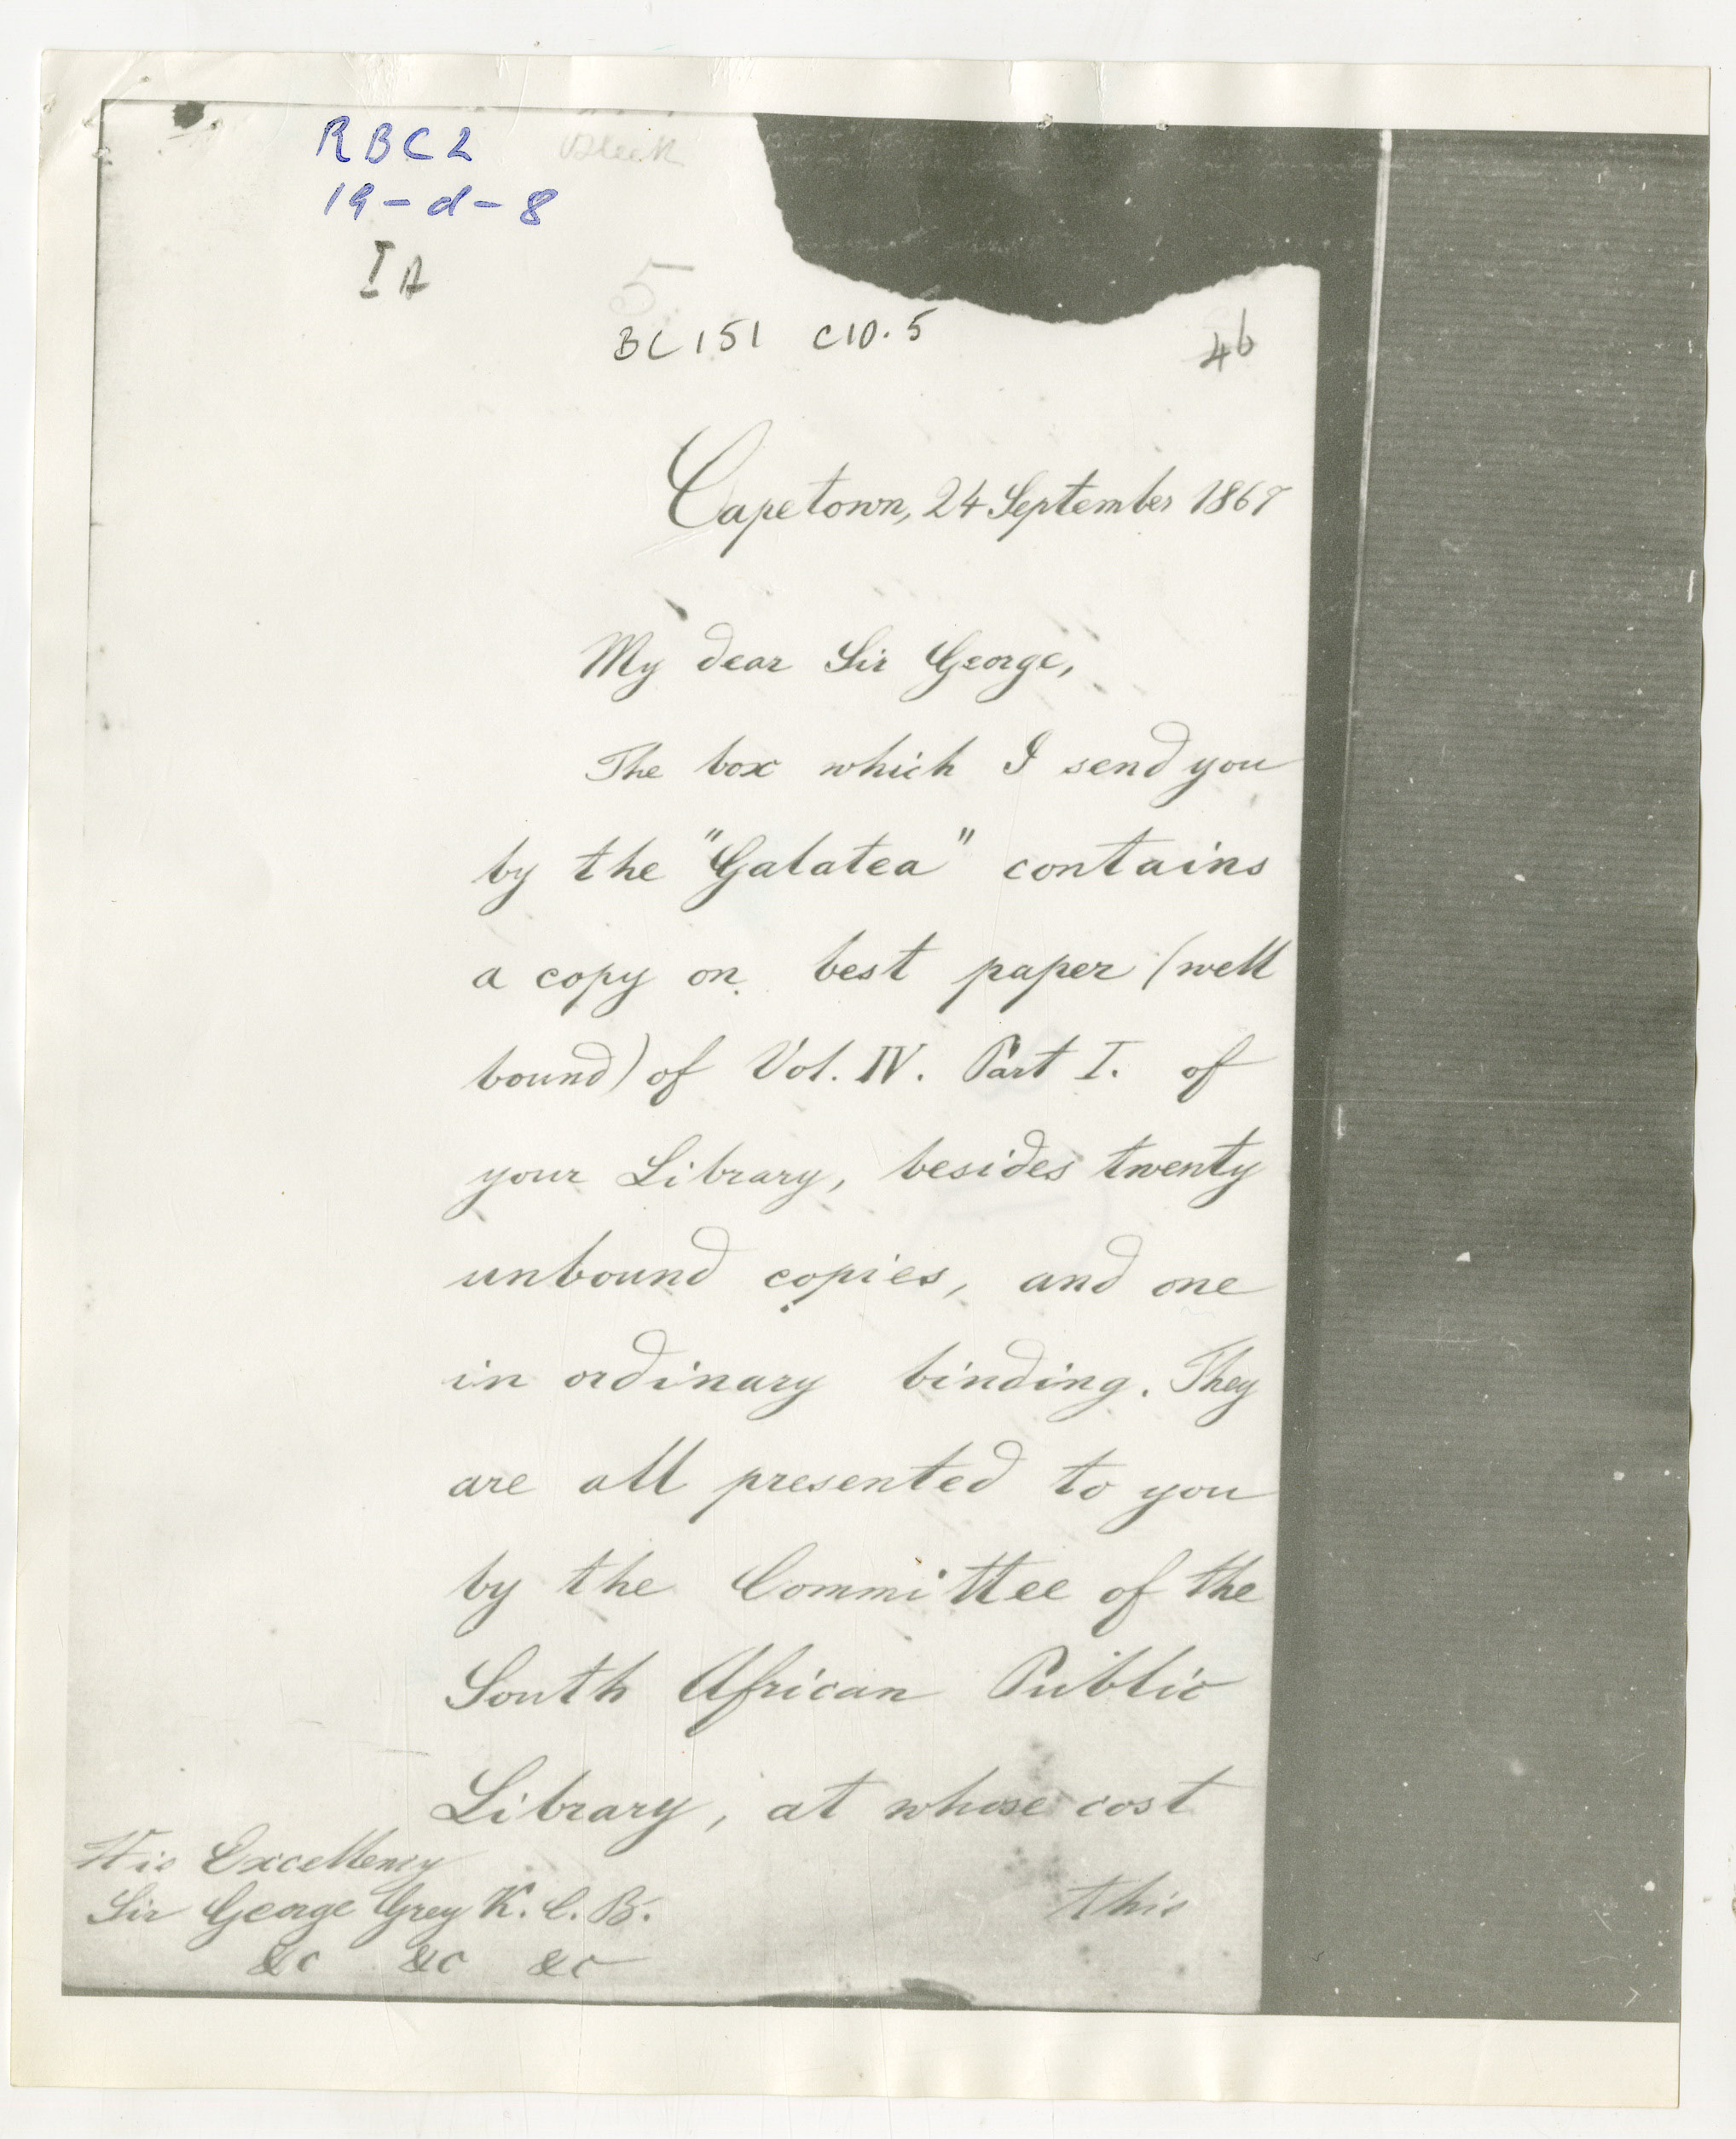 RBC2
Bleek
19-d-8
IA
5
BC151 C10.5
46
Capetown, 24 September 1867
My dear Sir George,
The box which I send you
by the "Galatea" contains
a copy on best paper (well
bound) of Vol. IV. Part I. of
your Library, besides twenty
unbound copies, and one
in ordinary binding. They
are all presented to you
by the Committee of the
South African Public
Library, at whose cost
this
His Excellency
Sir George Grey K.C.B.
&c &c &c